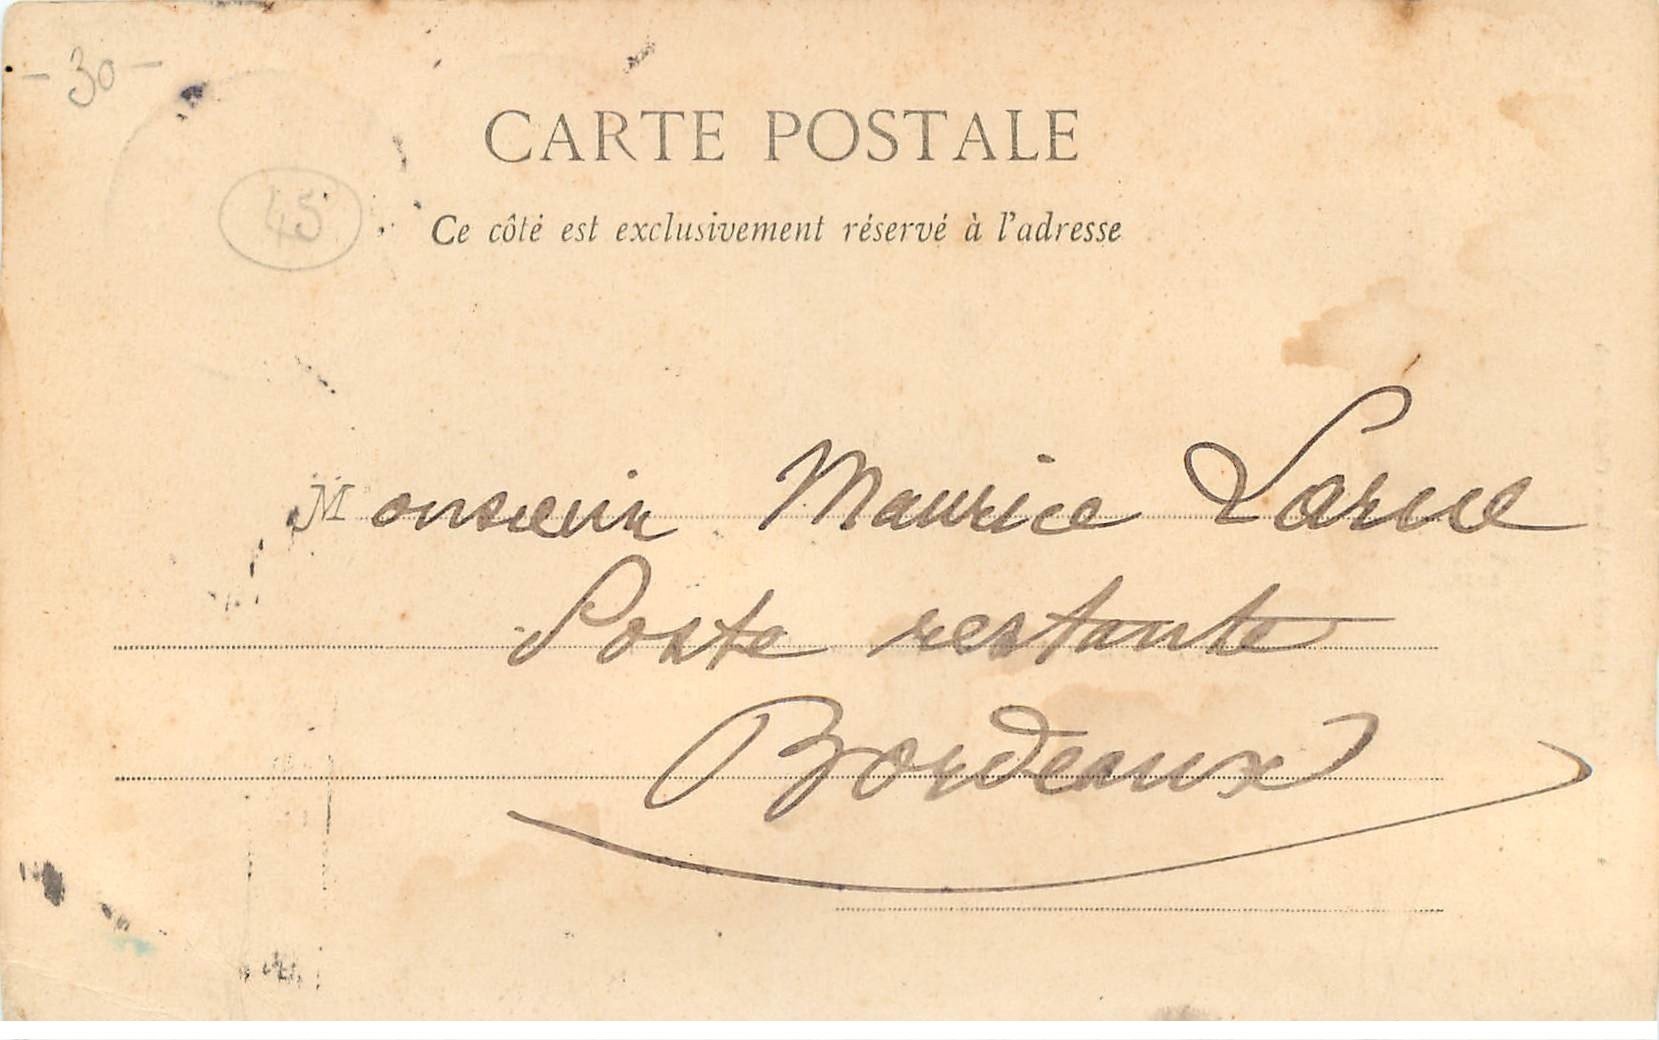 - 30 -
CARTE POSTALE
45
Ce côté est exclusivement réservé à l'adresse
Monsieur Maurice Larue
Poste restante
Bordeaux